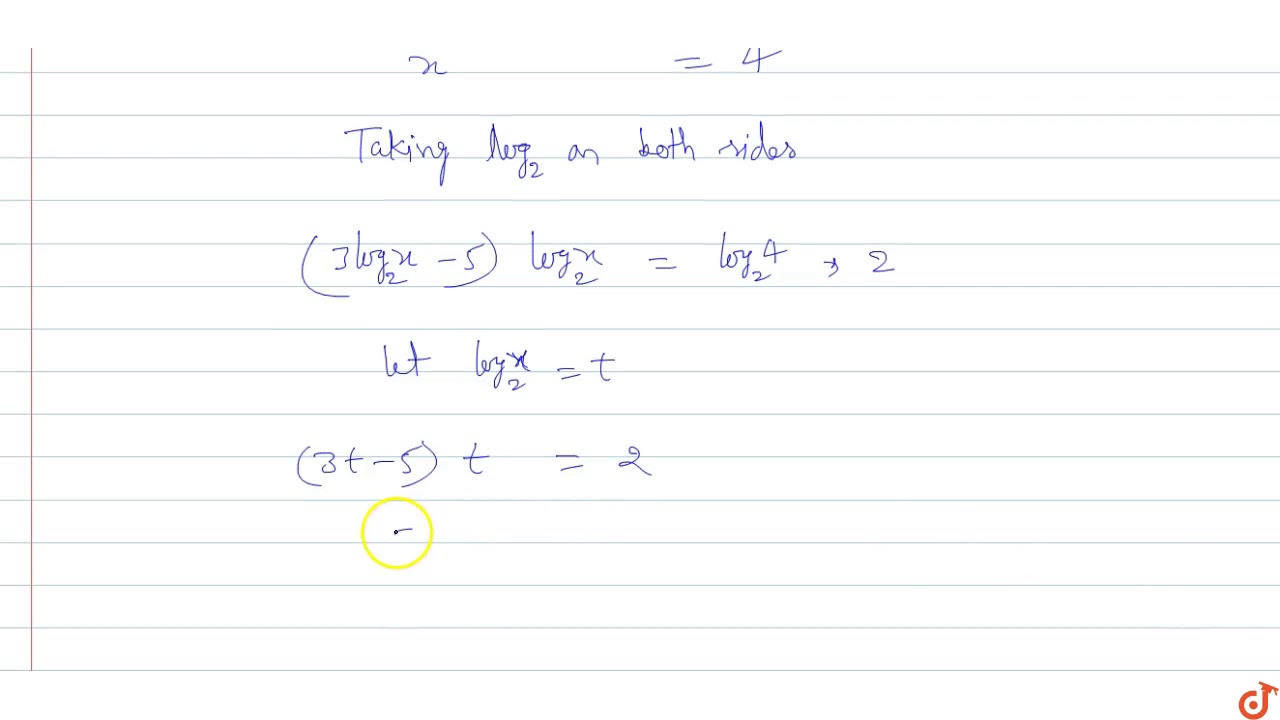 x = 4
Taking log₂ on both sides
(3log₂x - 5) log₂x = log₂4 , 2
let log₂x = t
(3t - 5) t = 2